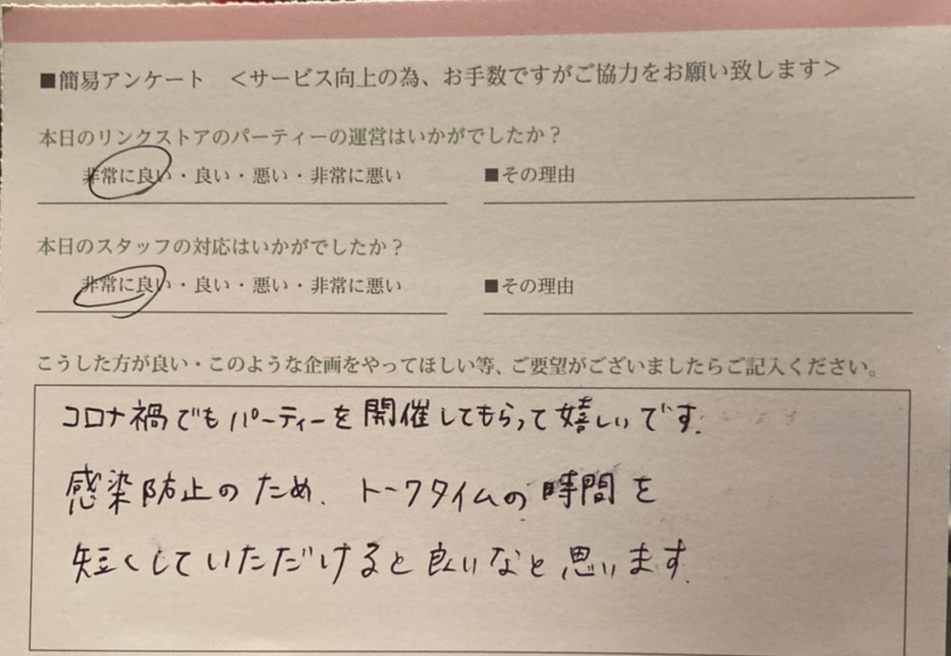 ■簡易アンケート ＜サービス向上の為、お手数ですがご協力をお願い致します＞
本日のリンクストアのパーティーの運営はいかがでしたか？
非常に良い・良い・悪い・非常に悪い ■その理由
本日のスタッフの対応はいかがでしたか？
非常に良い・良い・悪い・非常に悪い ■その理由
こうした方が良い・このような企画をやってほしい等、ご要望がございましたらご記入ください。
コロナ禍でもパーティーを開催してもらって嬉しいです.
感染防止のため、トークタイムの時間を
短くしていただけると良いなと思います.